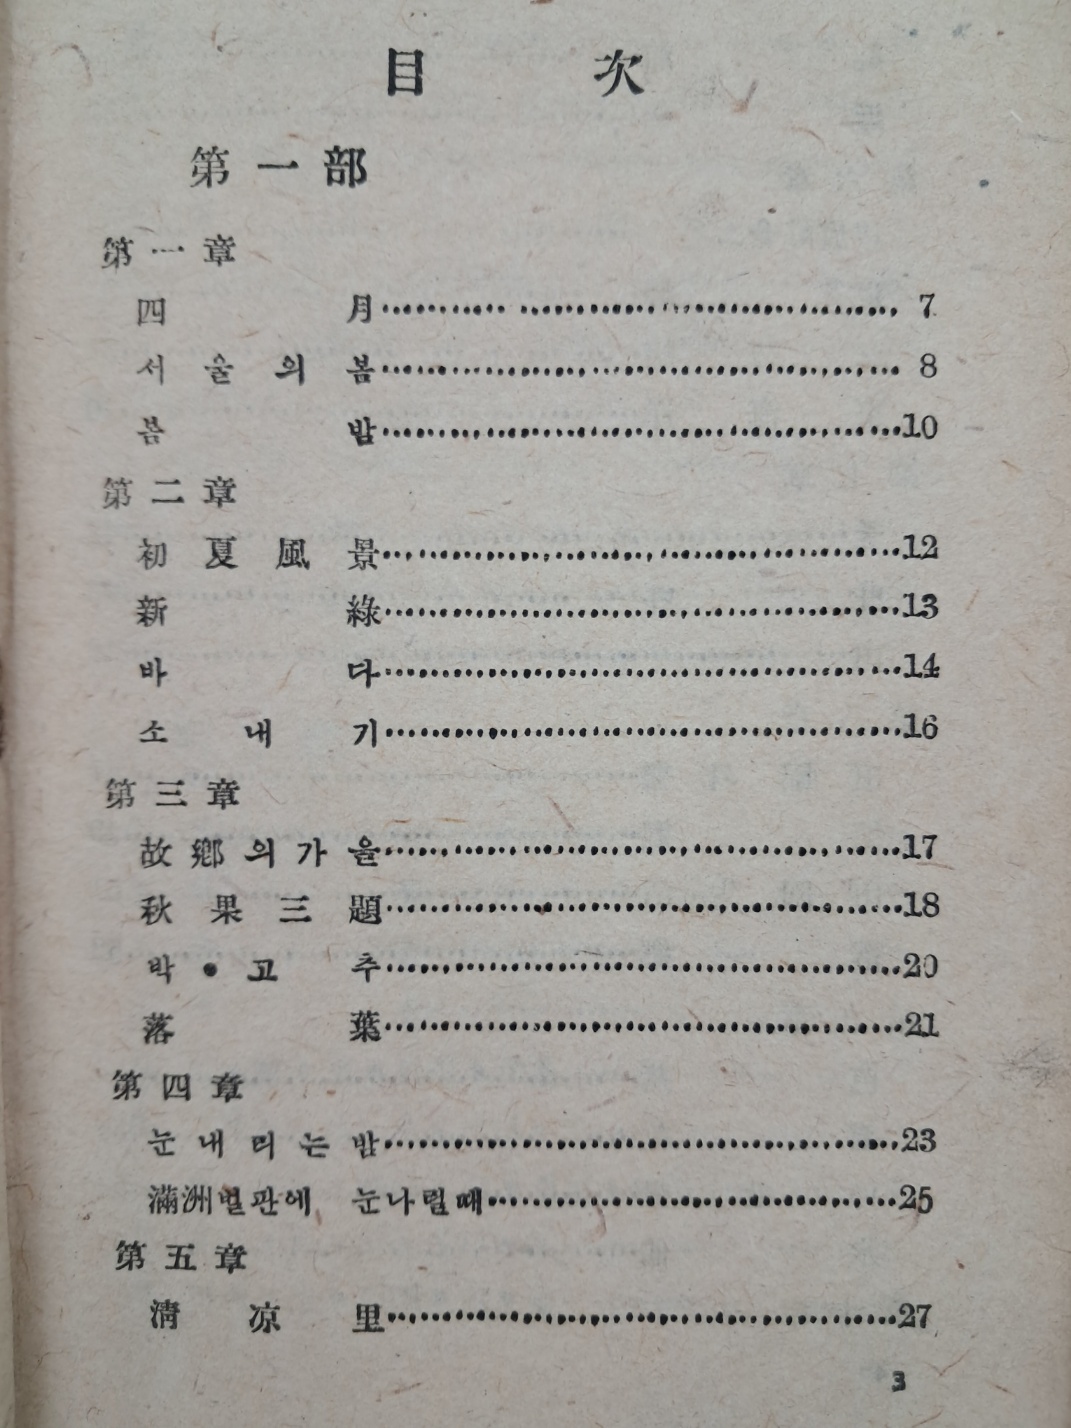 目 次
第一部
第一章
四 月 7
서울의 봄 8
봄 밤 10
第二章
初夏風景 12
新 綠 13
바 다 14
소 내 기 16
第三章
故鄕의가을 17
秋果三題 18
박•고 추 20
落 葉 21
第四章
눈내리는밤 23
滿洲벌판에 눈나릴때 25
第五章
淸 凉 里 27
3